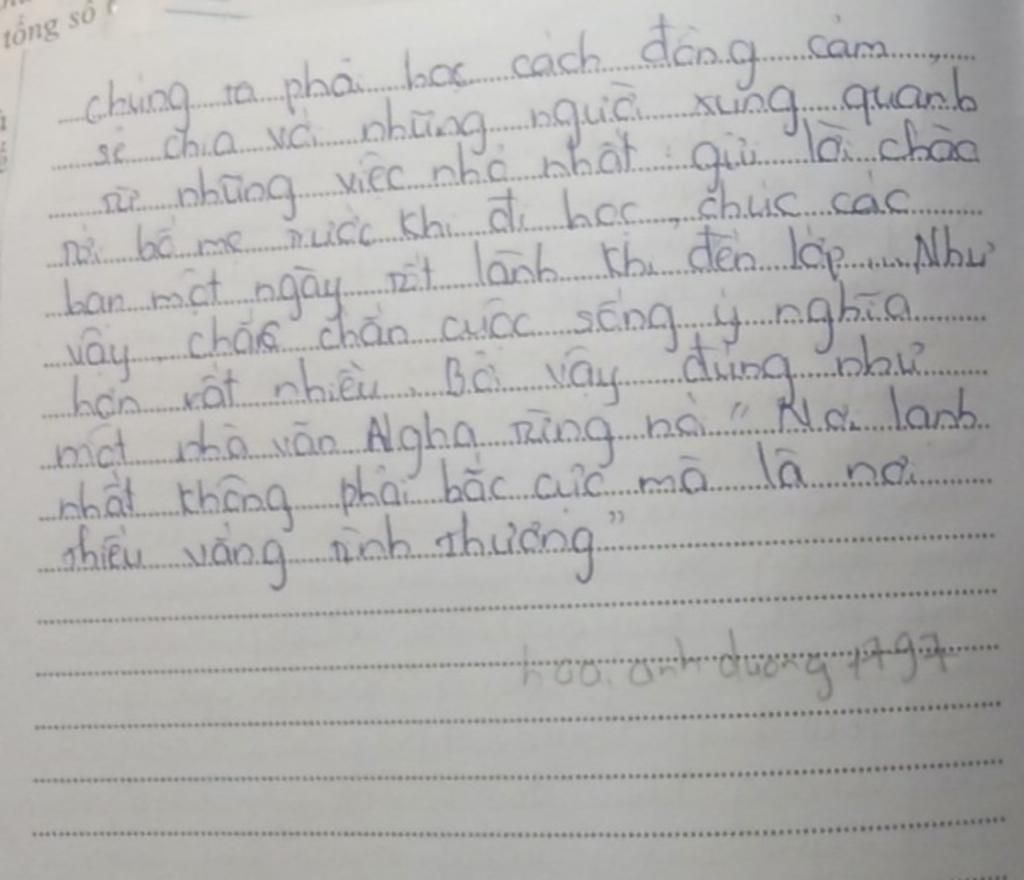 tổng số
chúng ta phải học cách đồng cảm,
sẻ chia với những người xung quanh
từ những việc nhỏ nhất: gửi lời chào
tới bố mẹ trước khi đi học, chúc các
bạn một ngày tốt lành khi đến lớp... Như
vậy, chắc chắn cuộc sống ý nghĩa
hơn rất nhiều. Bởi vậy đúng như
một nhà văn Nga từng nói "Nơi lạnh
nhất không phải bắc cực mà là nơi
thiếu vắng tình thương"
hoai anh duong 1797